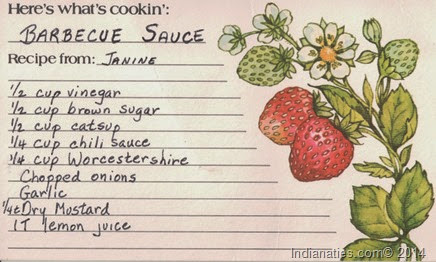 Here's what's cookin':
Barbecue Sauce
Recipe from: Janine
1/2 cup vinegar
1/2 cup brown sugar
1/2 cup catsup
1/4 cup chili sauce
1/4 cup Worcestershire
Chopped onions
Garlic
1/4t Dry Mustard
1T lemon juice
Indianaties.com© 2014